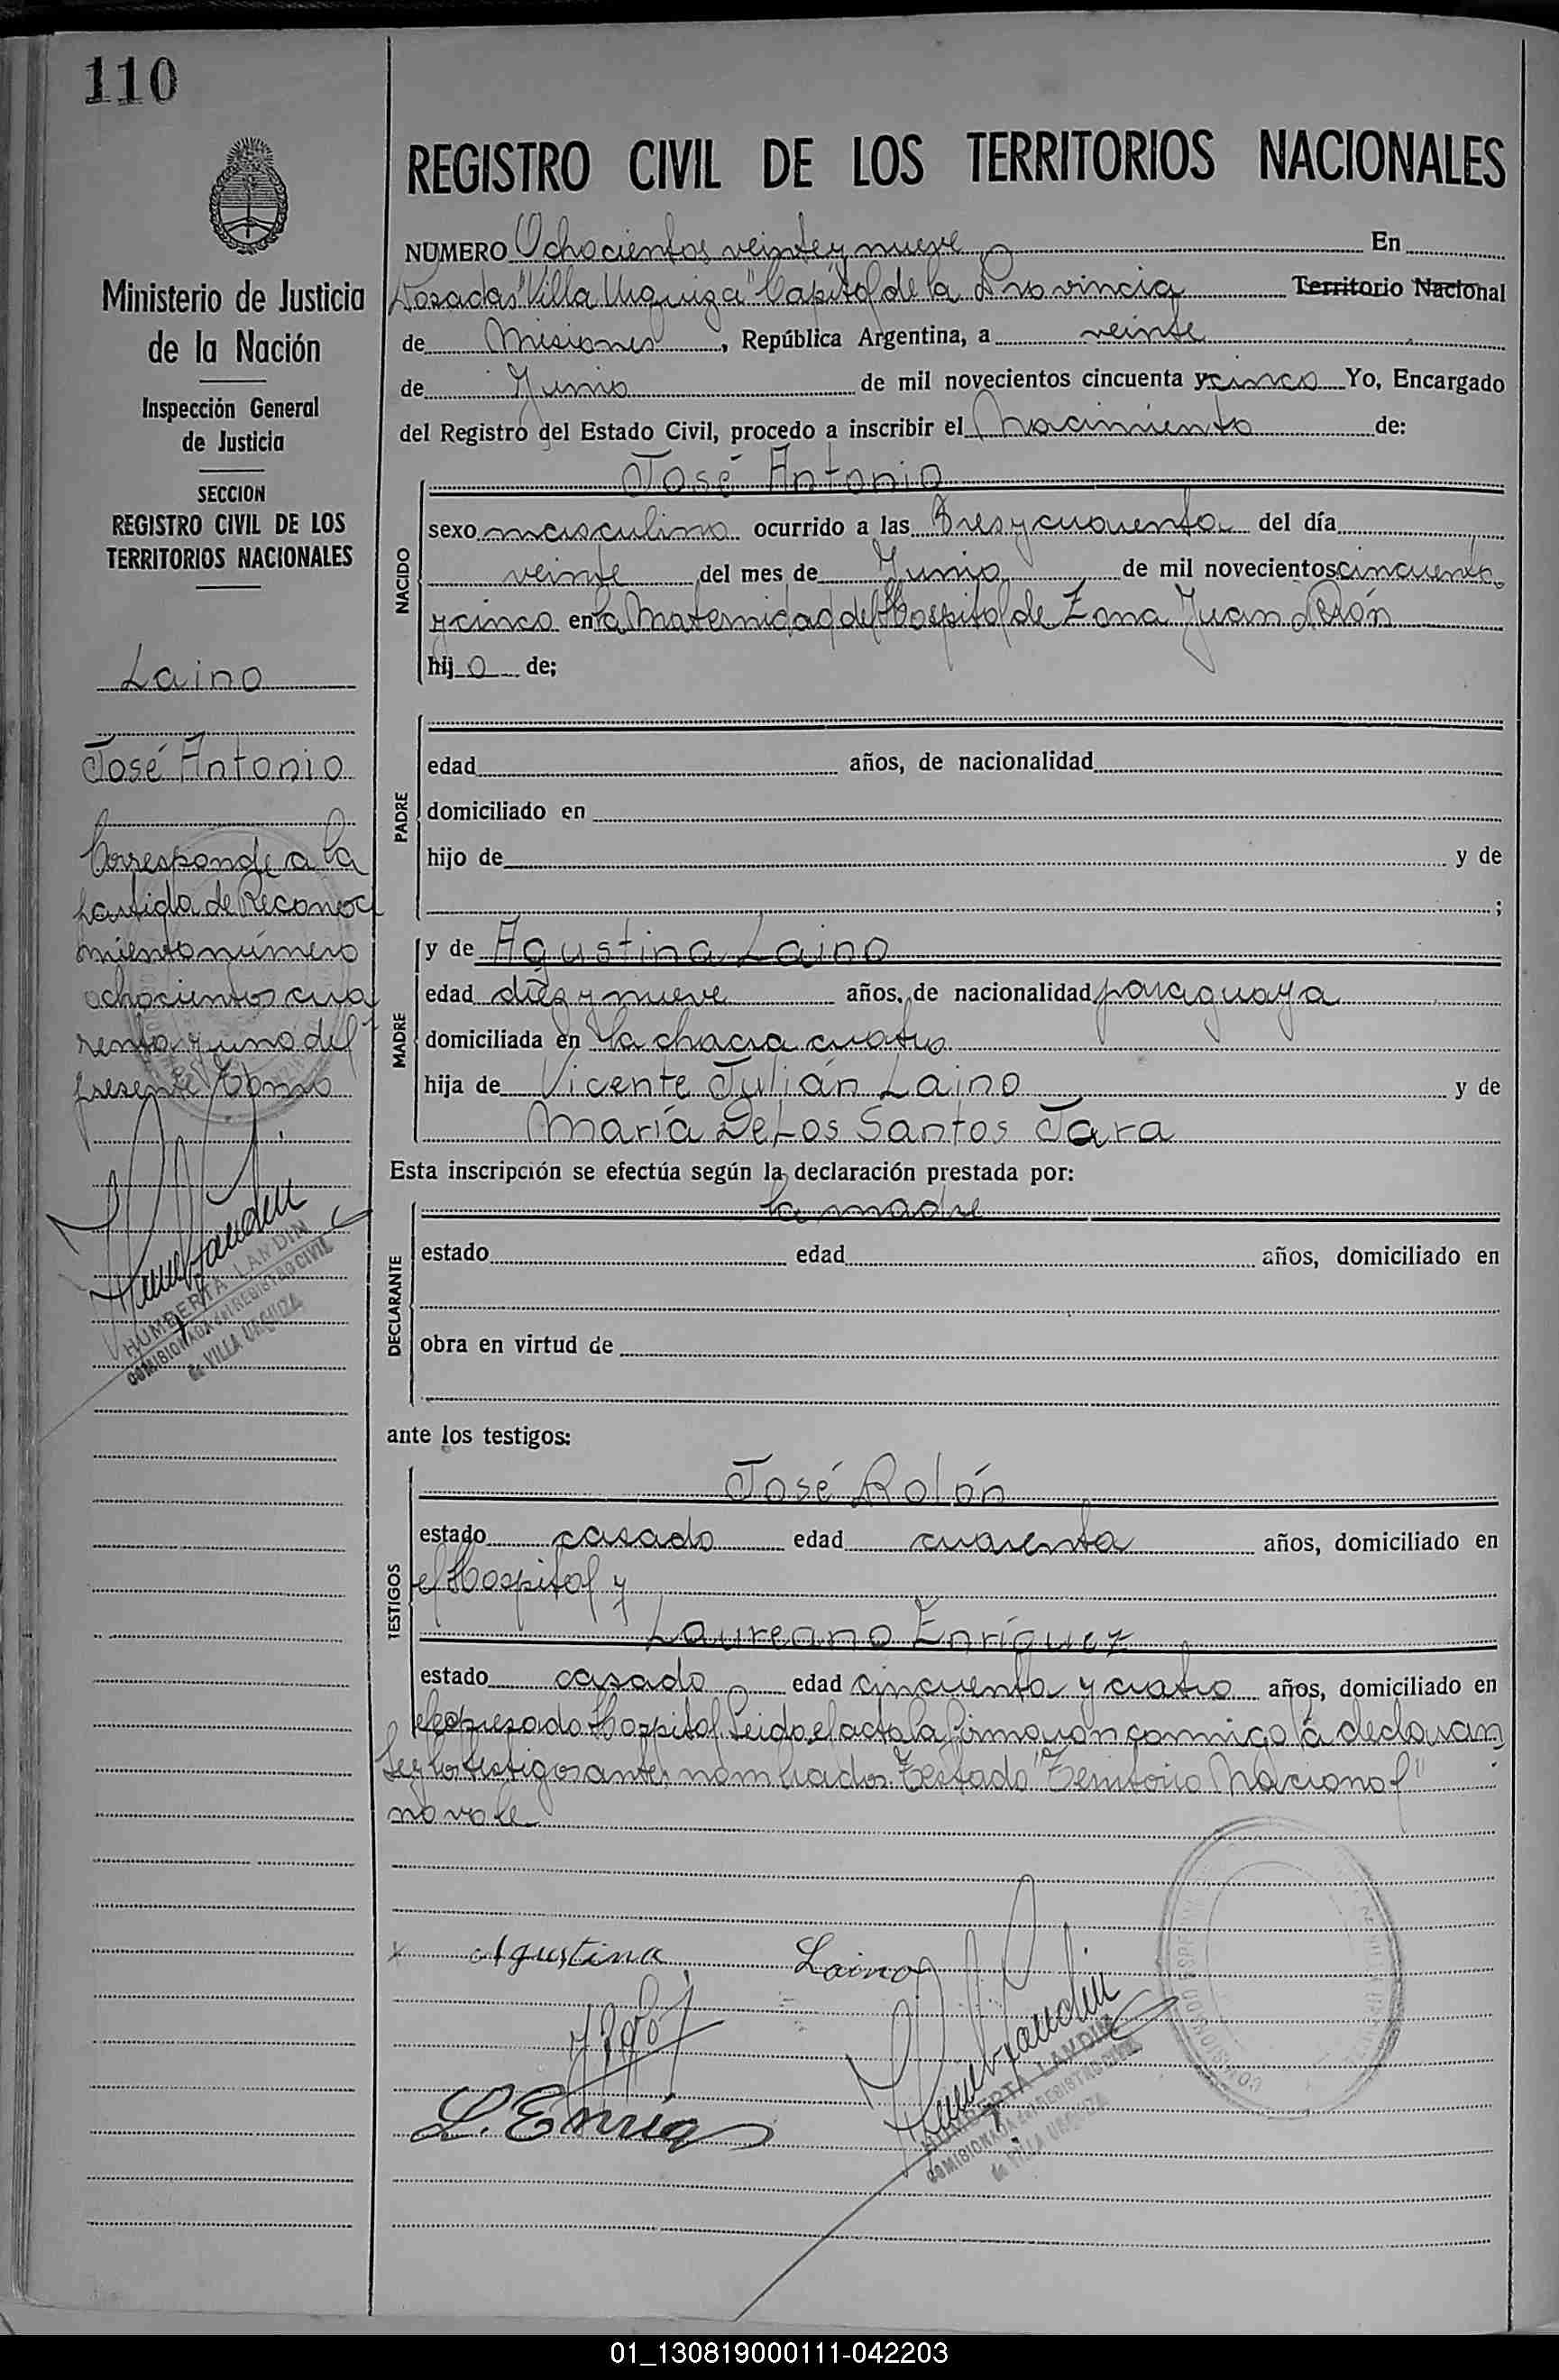 110
REGISTRO CIVIL DE LOS TERRITORIOS NACIONALES
Ministerio de Justicia
de la Nación
Inspección General
de Justicia
SECCION
REGISTRO CIVIL DE LOS
TERRITORIOS NACIONALES
Laino
José Antonio
Corresponde a la
partida de Reconoci
miento número
ochocientos cua
renta y uno del
presente Tomo
HUMBERTA LANDIN
COMISIONADA del REGISTRO CIVIL
de VILLA URQUIZA
NUMERO Ochocientos veinte y nueve En
Posadas "Villa Urquiza" Capital de la Provincia Territorio Nacional
de Misiones, República Argentina, a veinte
de Junio de mil novecientos cincuenta y cinco Yo, Encargado
del Registro del Estado Civil, procedo a inscribir el Nacimiento de:
NACIDO
José Antonio
sexo masculino ocurrido a las tres y cuarenta del día
veinte del mes de Junio de mil novecientos cincuenta
y cinco en la Maternidad del Hospital de Zona Juan Perón
hijo de;
PADRE
edad años, de nacionalidad
domiciliado en
hijo de y de
;
MADRE
y de Agustina Laino
edad diez y nueve años, de nacionalidad paraguaya
domiciliada en la chacra cuatro
hija de Vicente Julián Laino y de
María De Los Santos Jara
Esta inscripción se efectúa según la declaración prestada por:
DECLARANTE
la madre
estado edad años, domiciliado en
obra en virtud de
ante los testigos:
TESTIGOS
José Rolón
estado casado edad cuarenta años, domiciliado en
el Hospital y
Laureano Enríquez
estado casado edad cincuenta y cuatro años, domiciliado en
el expresado Hospital. Leida el acta la firmaron conmigo la declaran
te y los testigos antes nombrados. Testado "Territorio Nacional"
no vale
x Agustina Laino
L. Enríq
HUMBERTA LANDIN
COMISIONADA del REGISTRO CIVIL
de VILLA URQUIZA
01_130819000111-042203